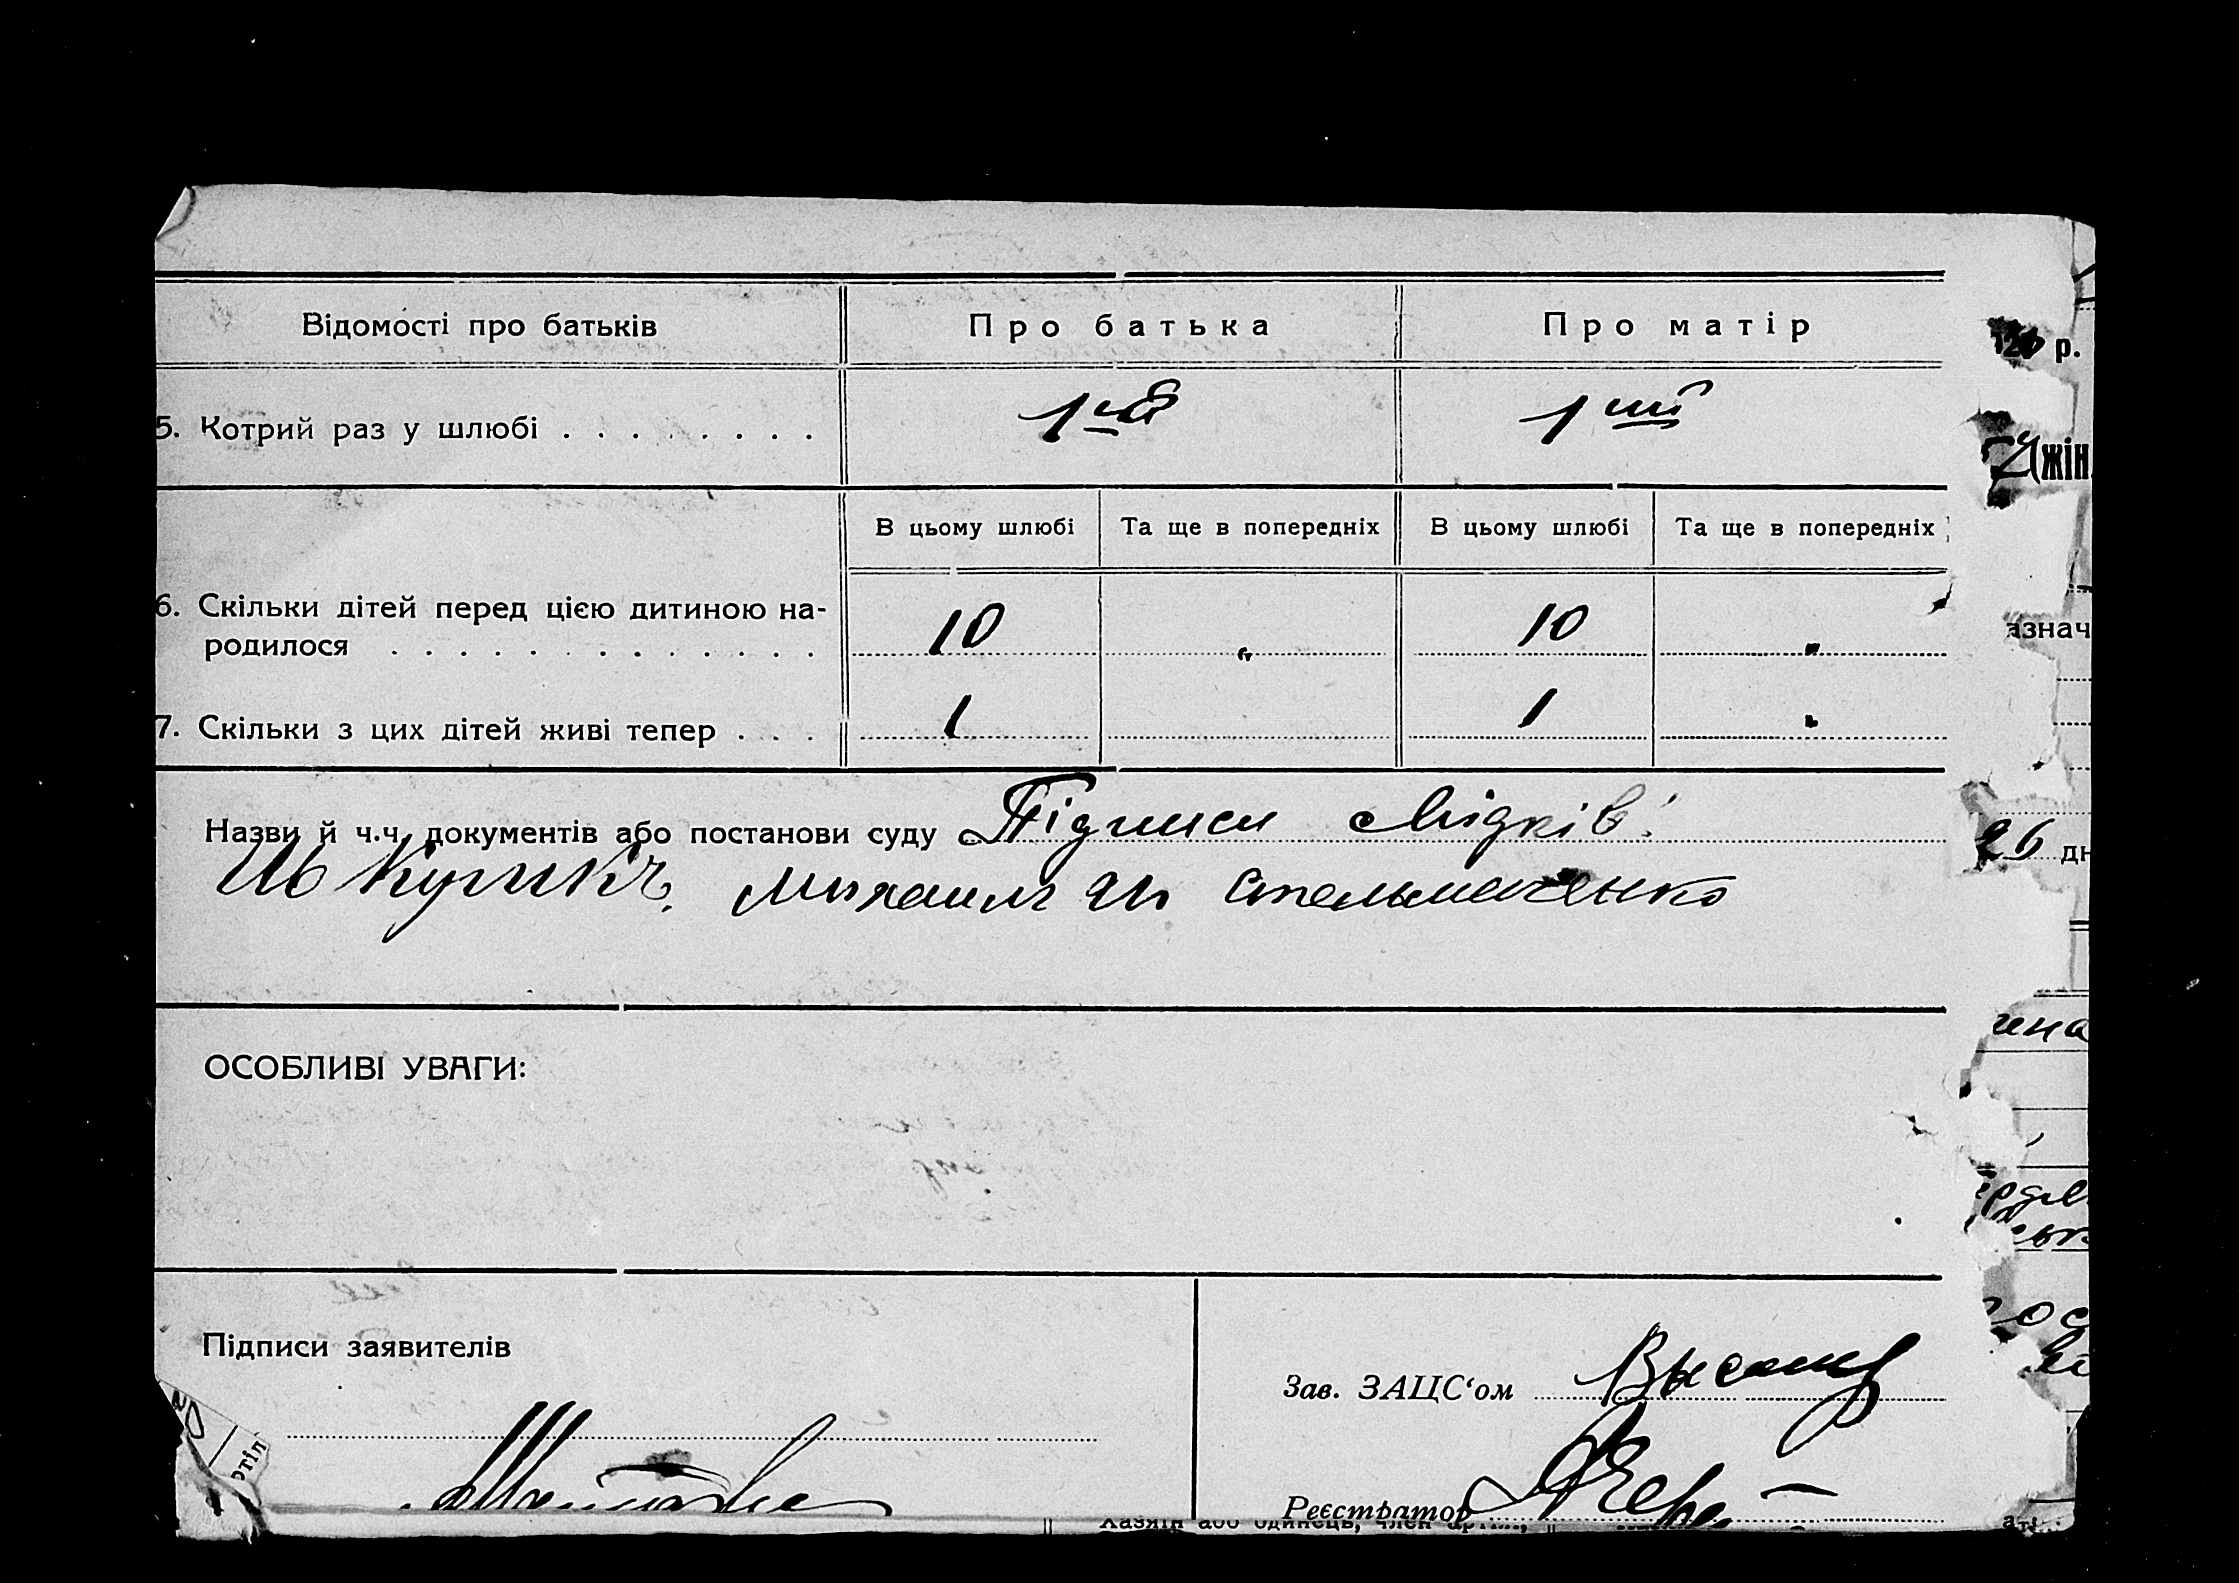 Відомості про батьків
Про батька
Про матір
5. Котрий раз у шлюбі . . . . . . . .
1ий
1ий
В цьому шлюбі
Та ще в попередніх
В цьому шлюбі
Та ще в попередніх
6. Скільки дітей перед цією дитиною на-
родилося . . . . . . . . . . . . .
10
"
10
"
7. Скільки з цих дітей живі тепер . . .
1
1
"
Назви й ч.ч. документів або постанови суду Підписи свідків:
Кулик, Михаил Стельмаченко
ОСОБЛИВІ УВАГИ:
Підписи заявителів
Зав. ЗАЦС'ом
Реєстратор
Хазяїн або одинець, член
р.
(жін.
азнач
26 дн